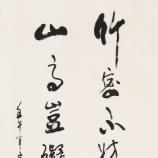 竹密不妨
山高豈礙